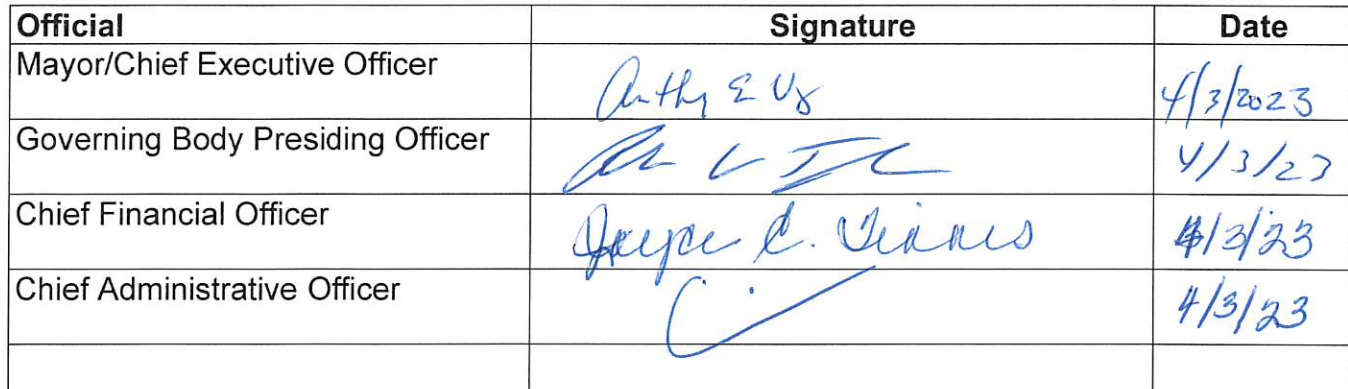 Official Signature Date
Mayor/Chief Executive Officer 4/3/2023
Governing Body Presiding Officer 4/3/23
Chief Financial Officer Joyce C. 4/3/23
Chief Administrative Officer 4/3/23